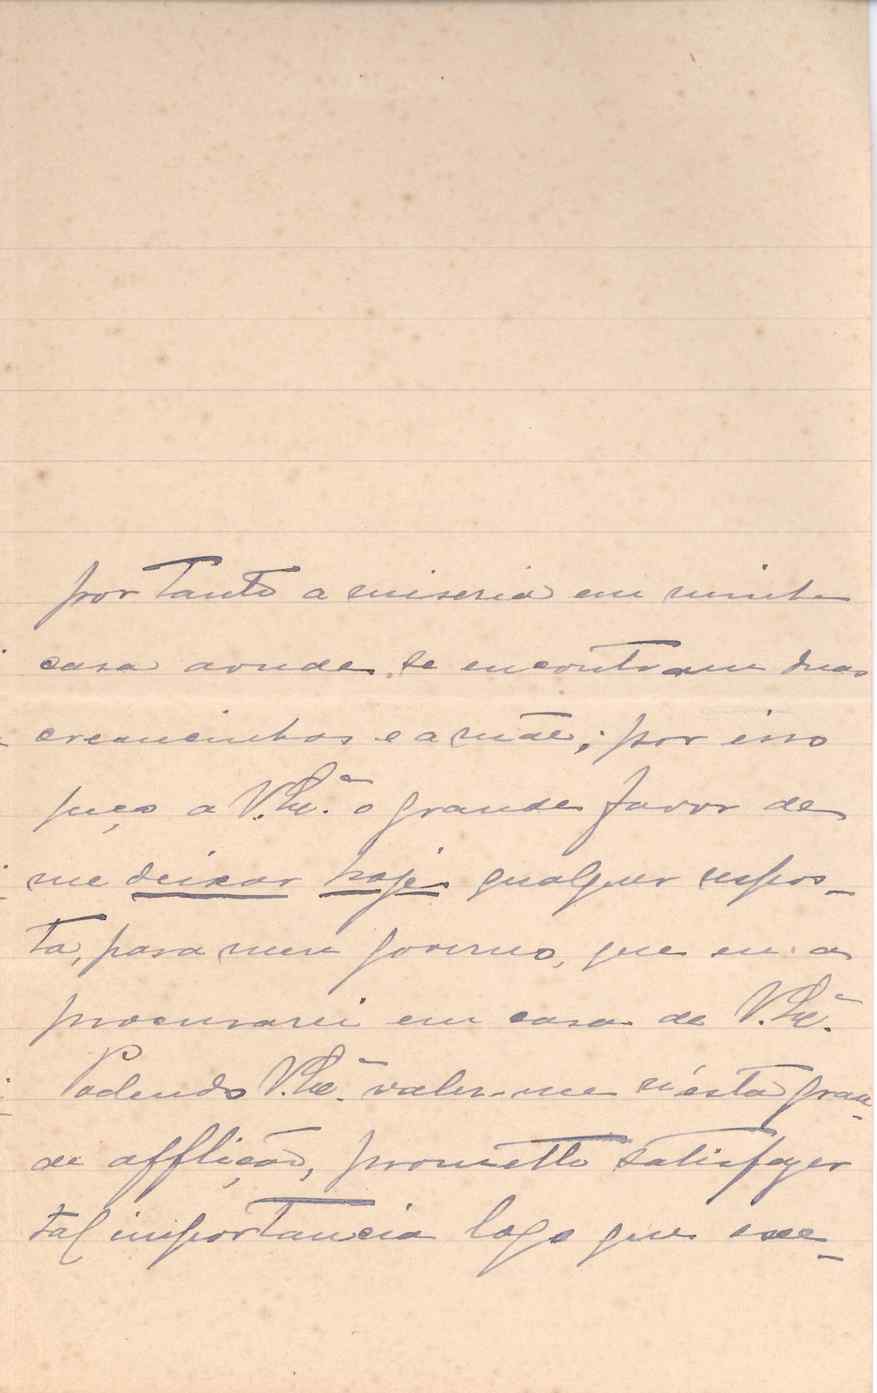 por tanto a miseria em minha
casa aonde se encontram duas
creancinhas e a mãe; por isso
peço a V. Exª. o grande favor de
me deixar hoje qualquer respos-
ta, para meu governo, que eu a
procurarei em casa de V. Exª.
Podendo V. Exª. valer-me n'esta gran-
de afflição, prometto satisfazer
tal importancia logo que